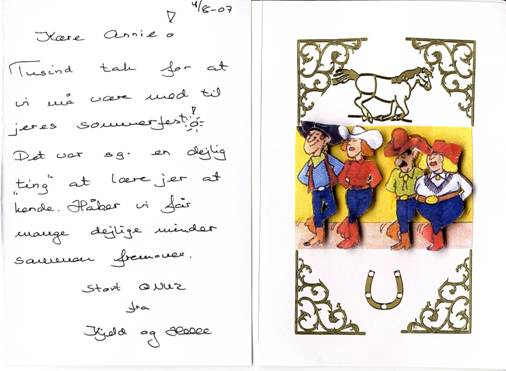 4/8-07
Kære Annie!
Tusind tak for at
vi må være med til
jeres sommerfest!
Det var sq. en dejlig
"ting" at lære jer at
kende. Håber vi får
mange dejlige minder
sammen fremover.
Stort
fra
Kjeld og